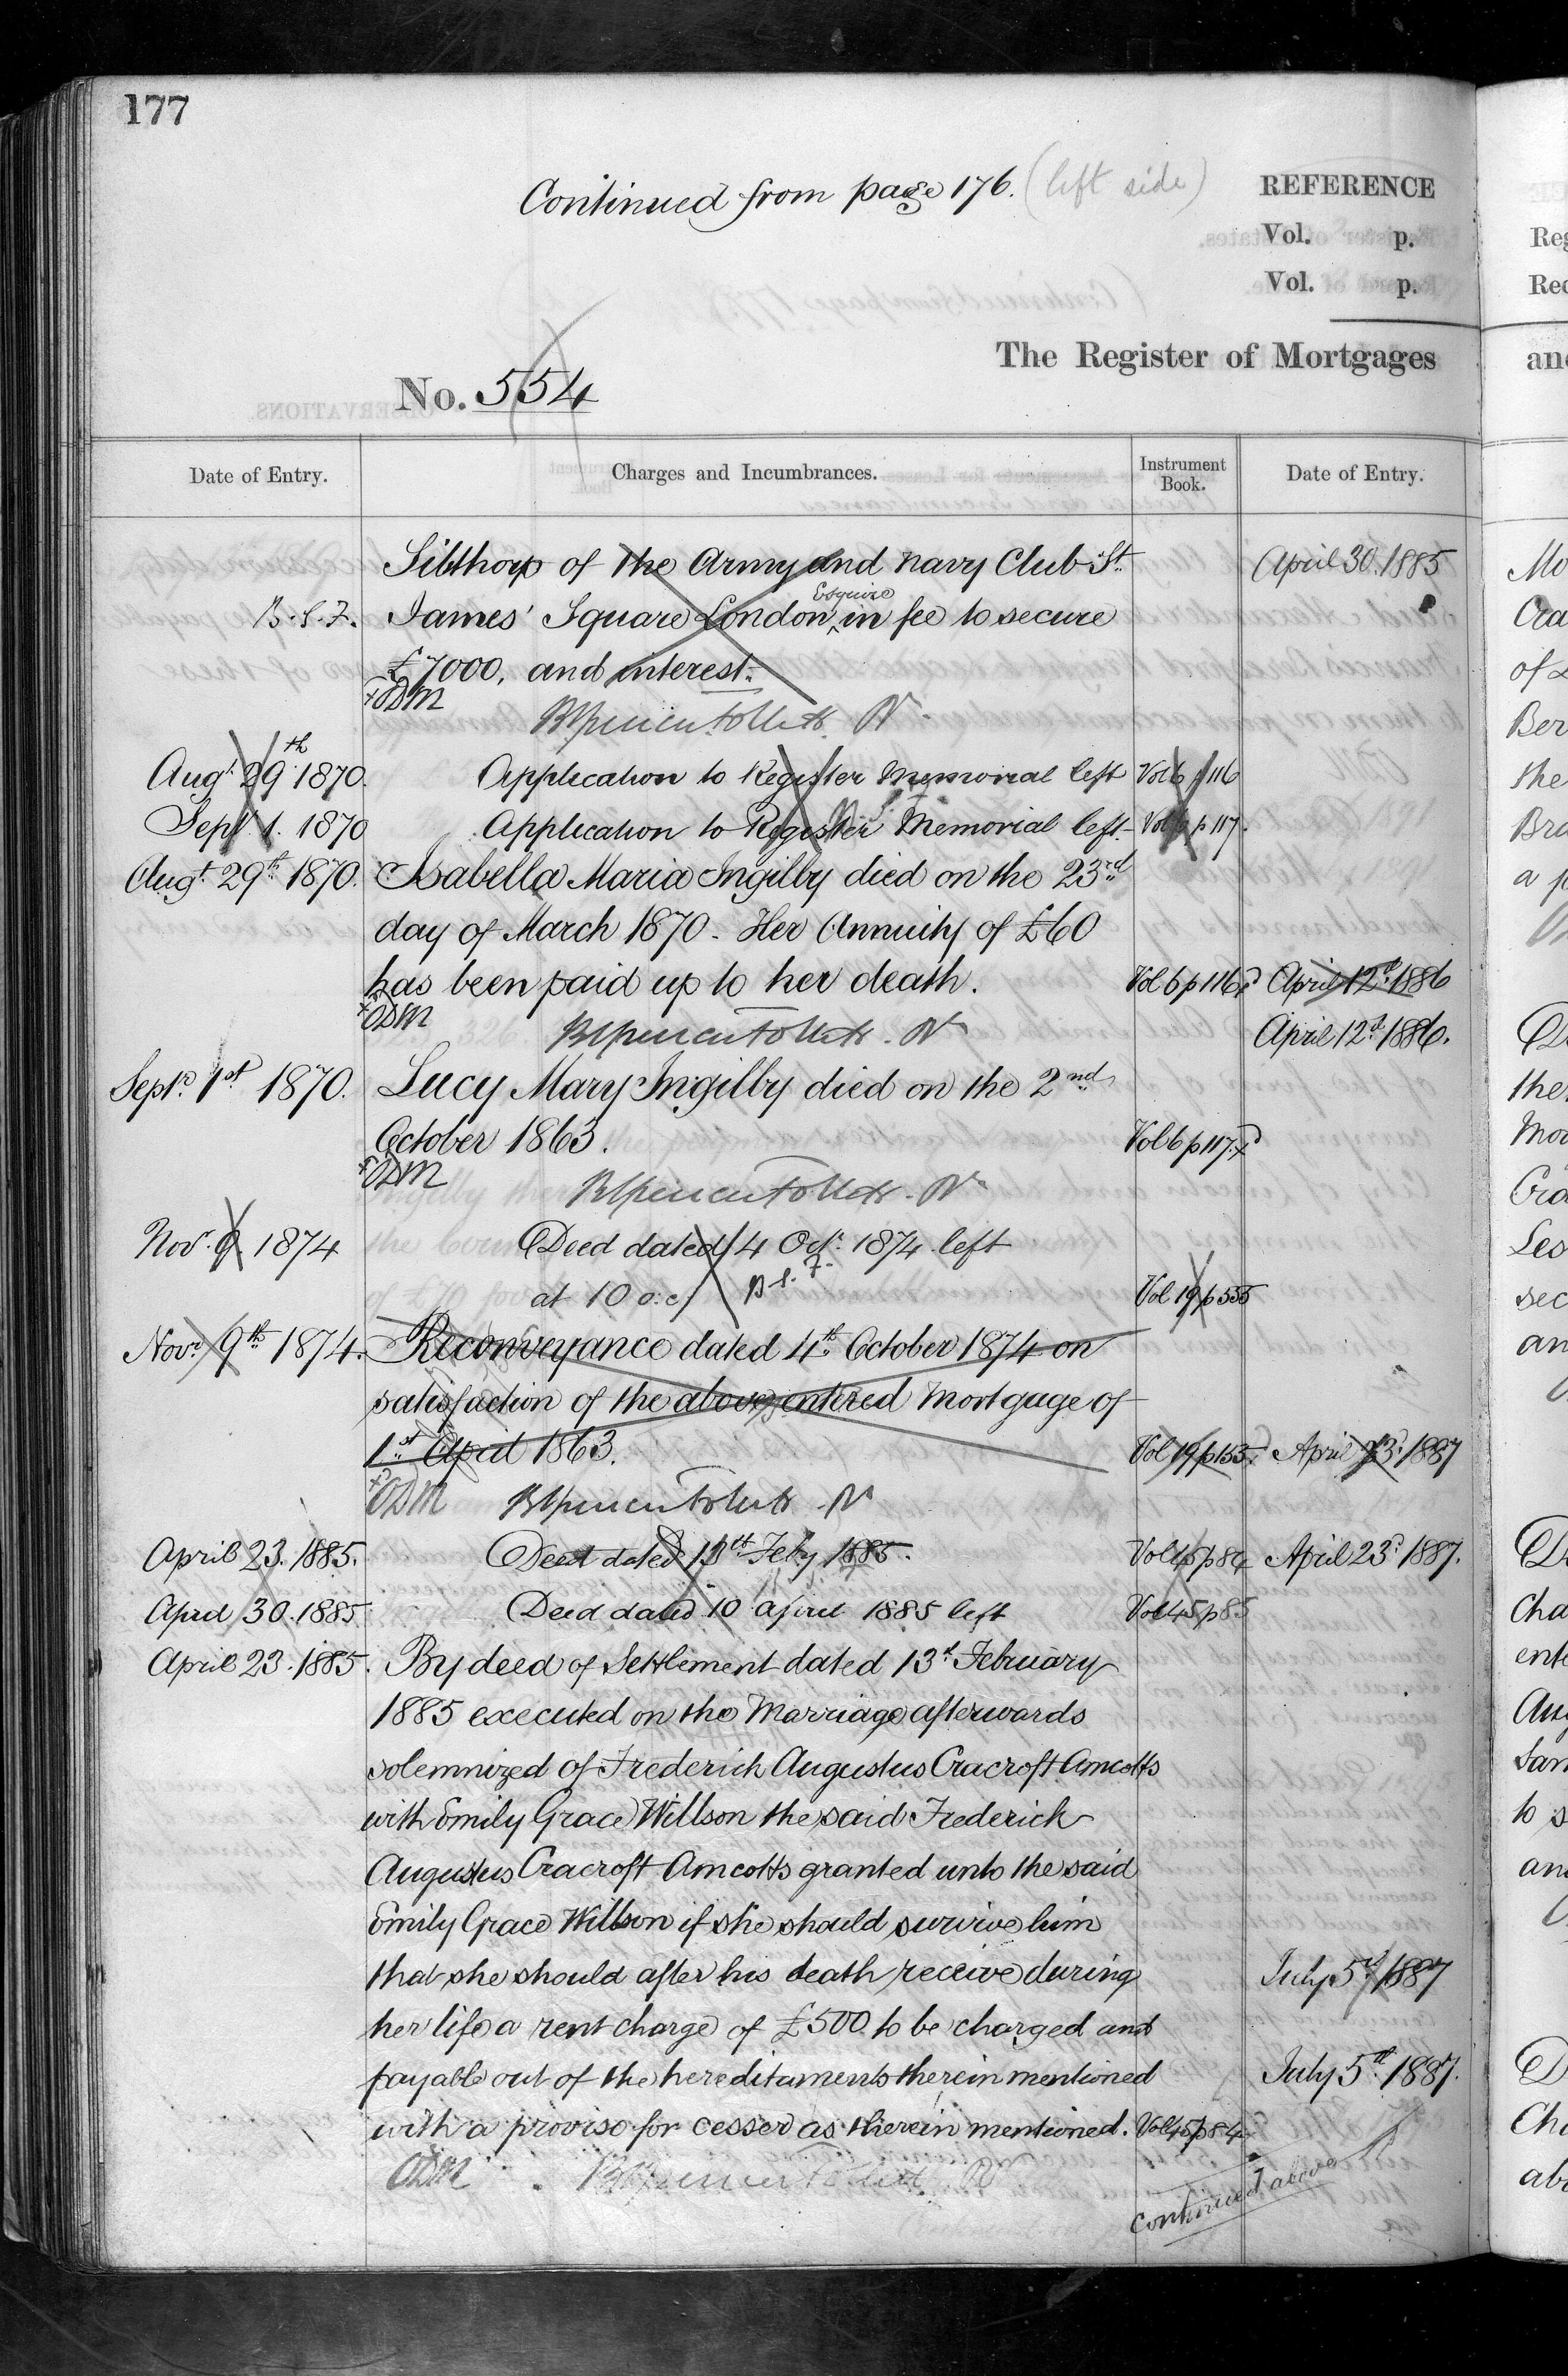 177
Continued from page 176. (left side)
REFERENCE
Vol. p.
Vol. p.
The Register of Mortgages
No. 554
Date of Entry. Charges and Incumbrances. Instrument Book. Date of Entry.
Sibthorp of the Army and Navy Club St. April 30. 1885
B.S.F. James' Square London Esquire in fee to secure
£7000, and interest.
ODM
Augt. 29th 1870. Application to Register Memorial left Vol 6 p 116
Sept 1. 1870 Application to Register Memorial left Vol 6 p 117.
Augt. 29th 1870. Isabella Maria Ingilby died on the 23rd
day of March 1870. Her Annuity of £60
has been paid up to her death. Vol 6 p 116 April 12th 1886
ODM April 12th 1886.
Septr. 1st 1870. Lucy Mary Ingilby died on the 2nd
October 1863. Vol 6 p 117.
ODM
Nov. 9 1874 Deed dated 4 Oct. 1874 left
at 10 o.c/ B.S.F. Vol 19 p
Novr. 9th 1874. Reconveyance dated 4th October 1874 on
satisfaction of the above entered Mortgage of
1st April 1863. Vol 19 p 155. April 23. 1887
ODM
April 23. 1885. Deed dated 13th Feby 1885. Vol 45 p 84 April 23d 1887.
April 30. 1885 Deed dated 10 april 1885 left Vol 45 p 85
April 23. 1885. By deed of Settlement dated 13th February
1885 executed on the Marriage afterwards
solemnized of Frederick Augustus Cracroft Amcotts
with Emily Grace Willson the said Frederick
Augustus Cracroft Amcotts granted unto the said
Emily Grace Willson if she should survive him
that she should after his death receive during July 5th 1887
her life a rent charge of £500 to be charged and
payable out of the hereditaments therein mentioned July 5th 1887.
with a proviso for cesser as therein mentioned. Vol 45 p 84
ODM
continued above
Reg
Rec
and
Mo
Cra
of L
Ber
the
Bra
a p
the
Mor
Cra
Les
sec
an
Cha
ente
Au
Sam
to s
an
Cha
abo